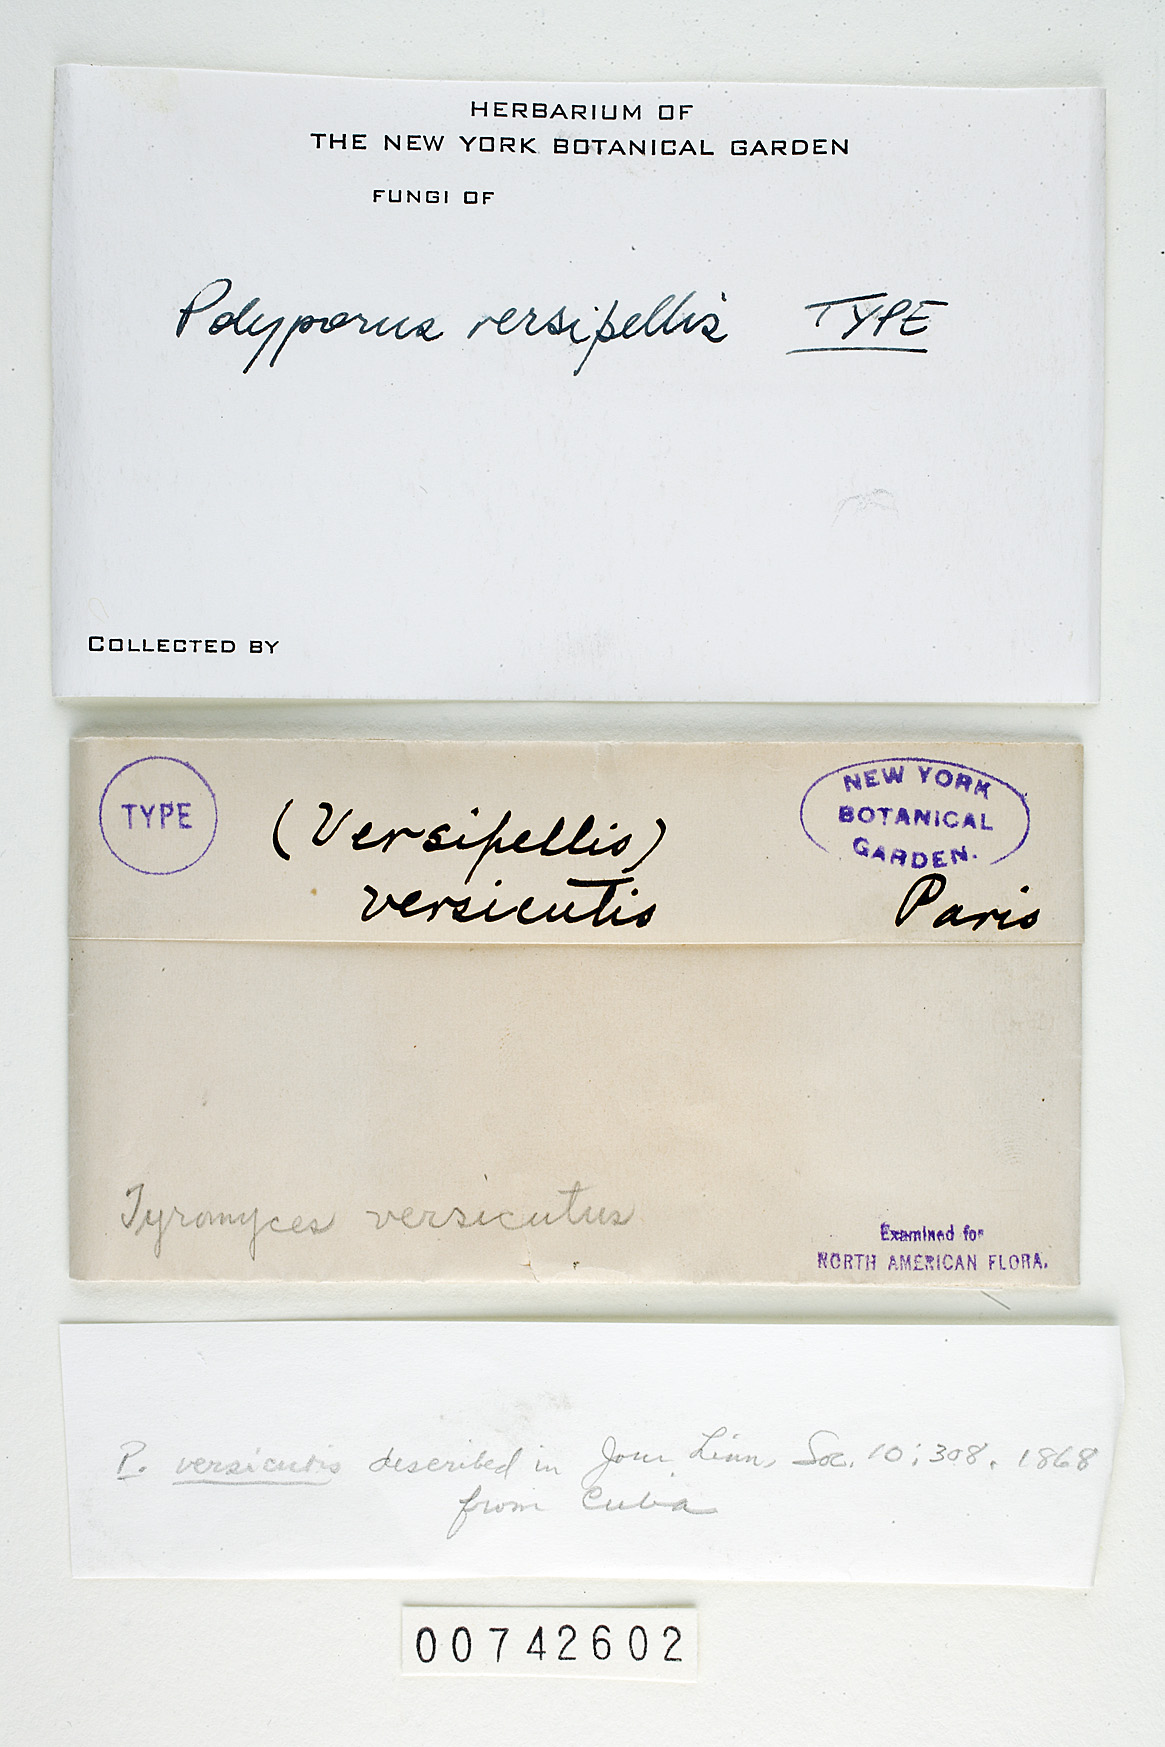 HERBARIUM OF
THE NEW YORK BOTANICAL GARDEN
FUNGI OF
Polyporus versipellis TYPE
COLLECTED BY
TYPE
(Versipellis)
versicutis
NEW YORK
BOTANICAL
GARDEN.
Paris
Tyromyces versicutus
Examined for
NORTH AMERICAN FLORA.
P. versicutis described in Jour Linn, Soc. 10:308. 1868
from Cuba
00742602